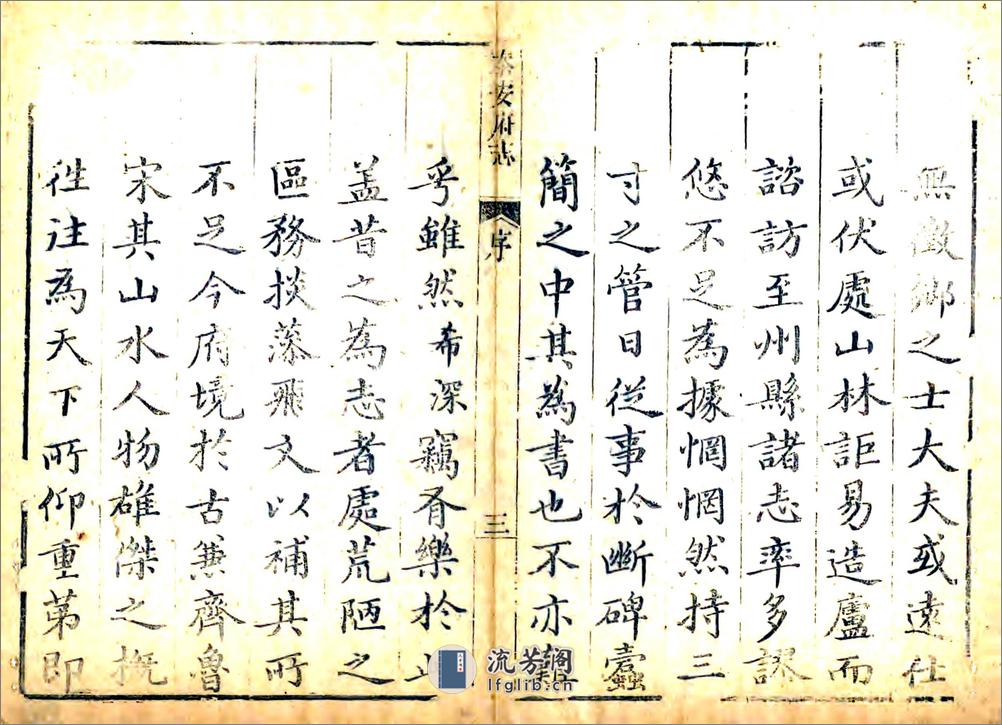 無徵鄉之士大夫或遠仕
或伏處山林詎易造廬而
諮訪至州縣諸志率多謬
悠不足為據惘惘然持三
寸之管日從事於斷碑蠹
簡之中其為書也不亦
泰安府志
序
三
乎雖然希深竊有樂於
盖昔之為志者處荒陋之
區務掞藻飛文以補其所
不足今府境於古兼齊魯
宋其山水人物雄傑之概
徃往為天下所仰重第即
流芳閣
lfglib.cn